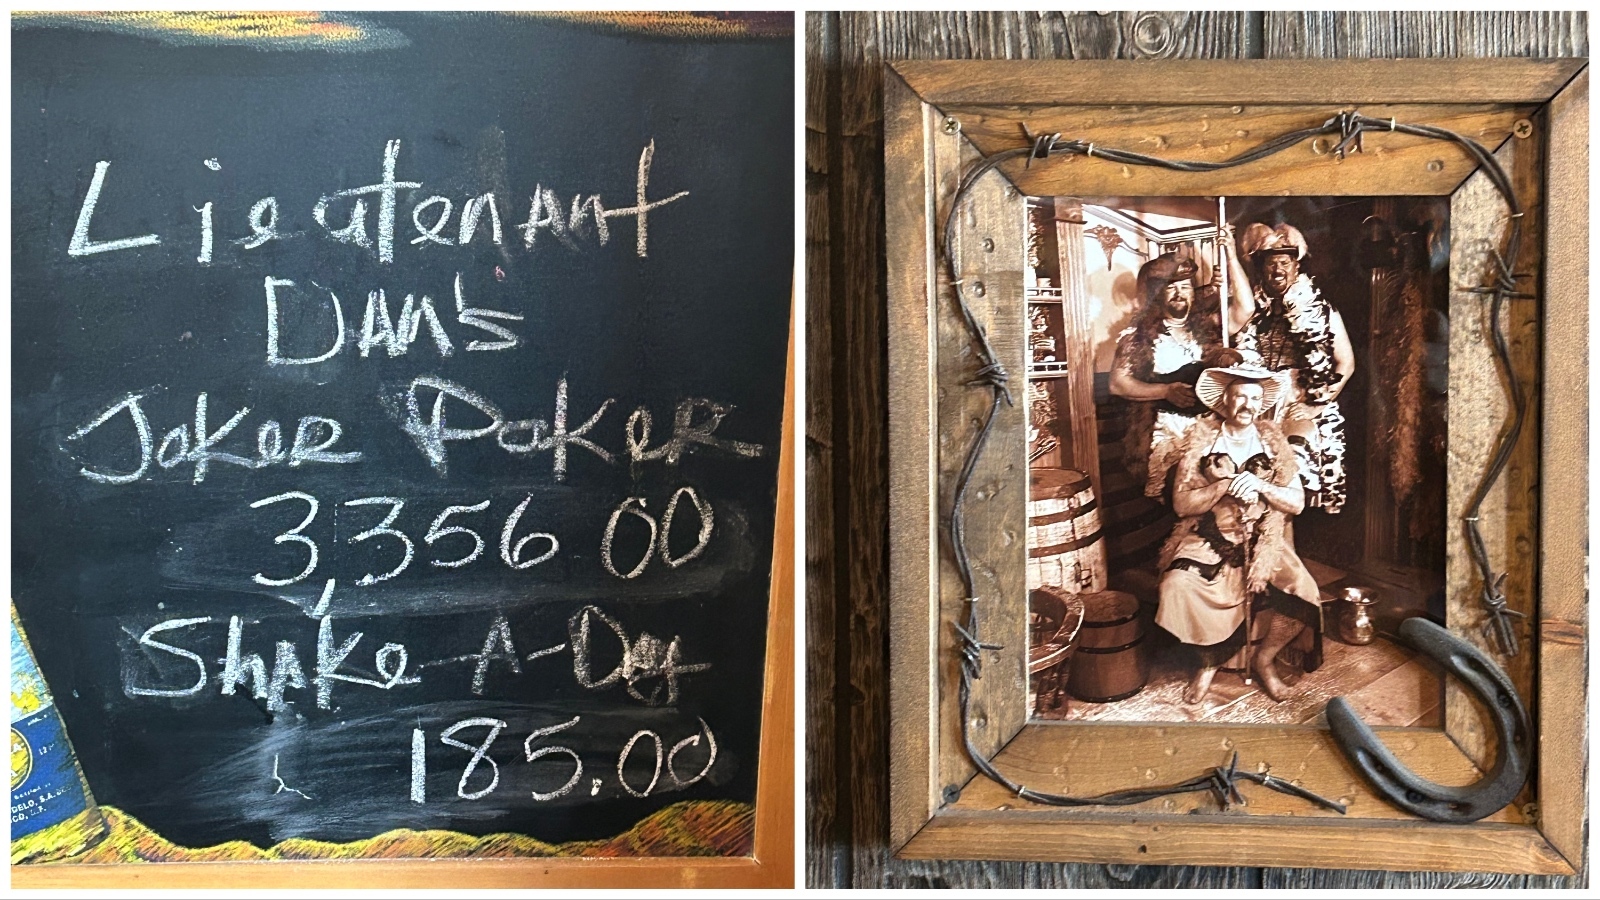 Lieutenant
Dan's
Joker Poker
3,356 00
Shake-A-Day
185.00